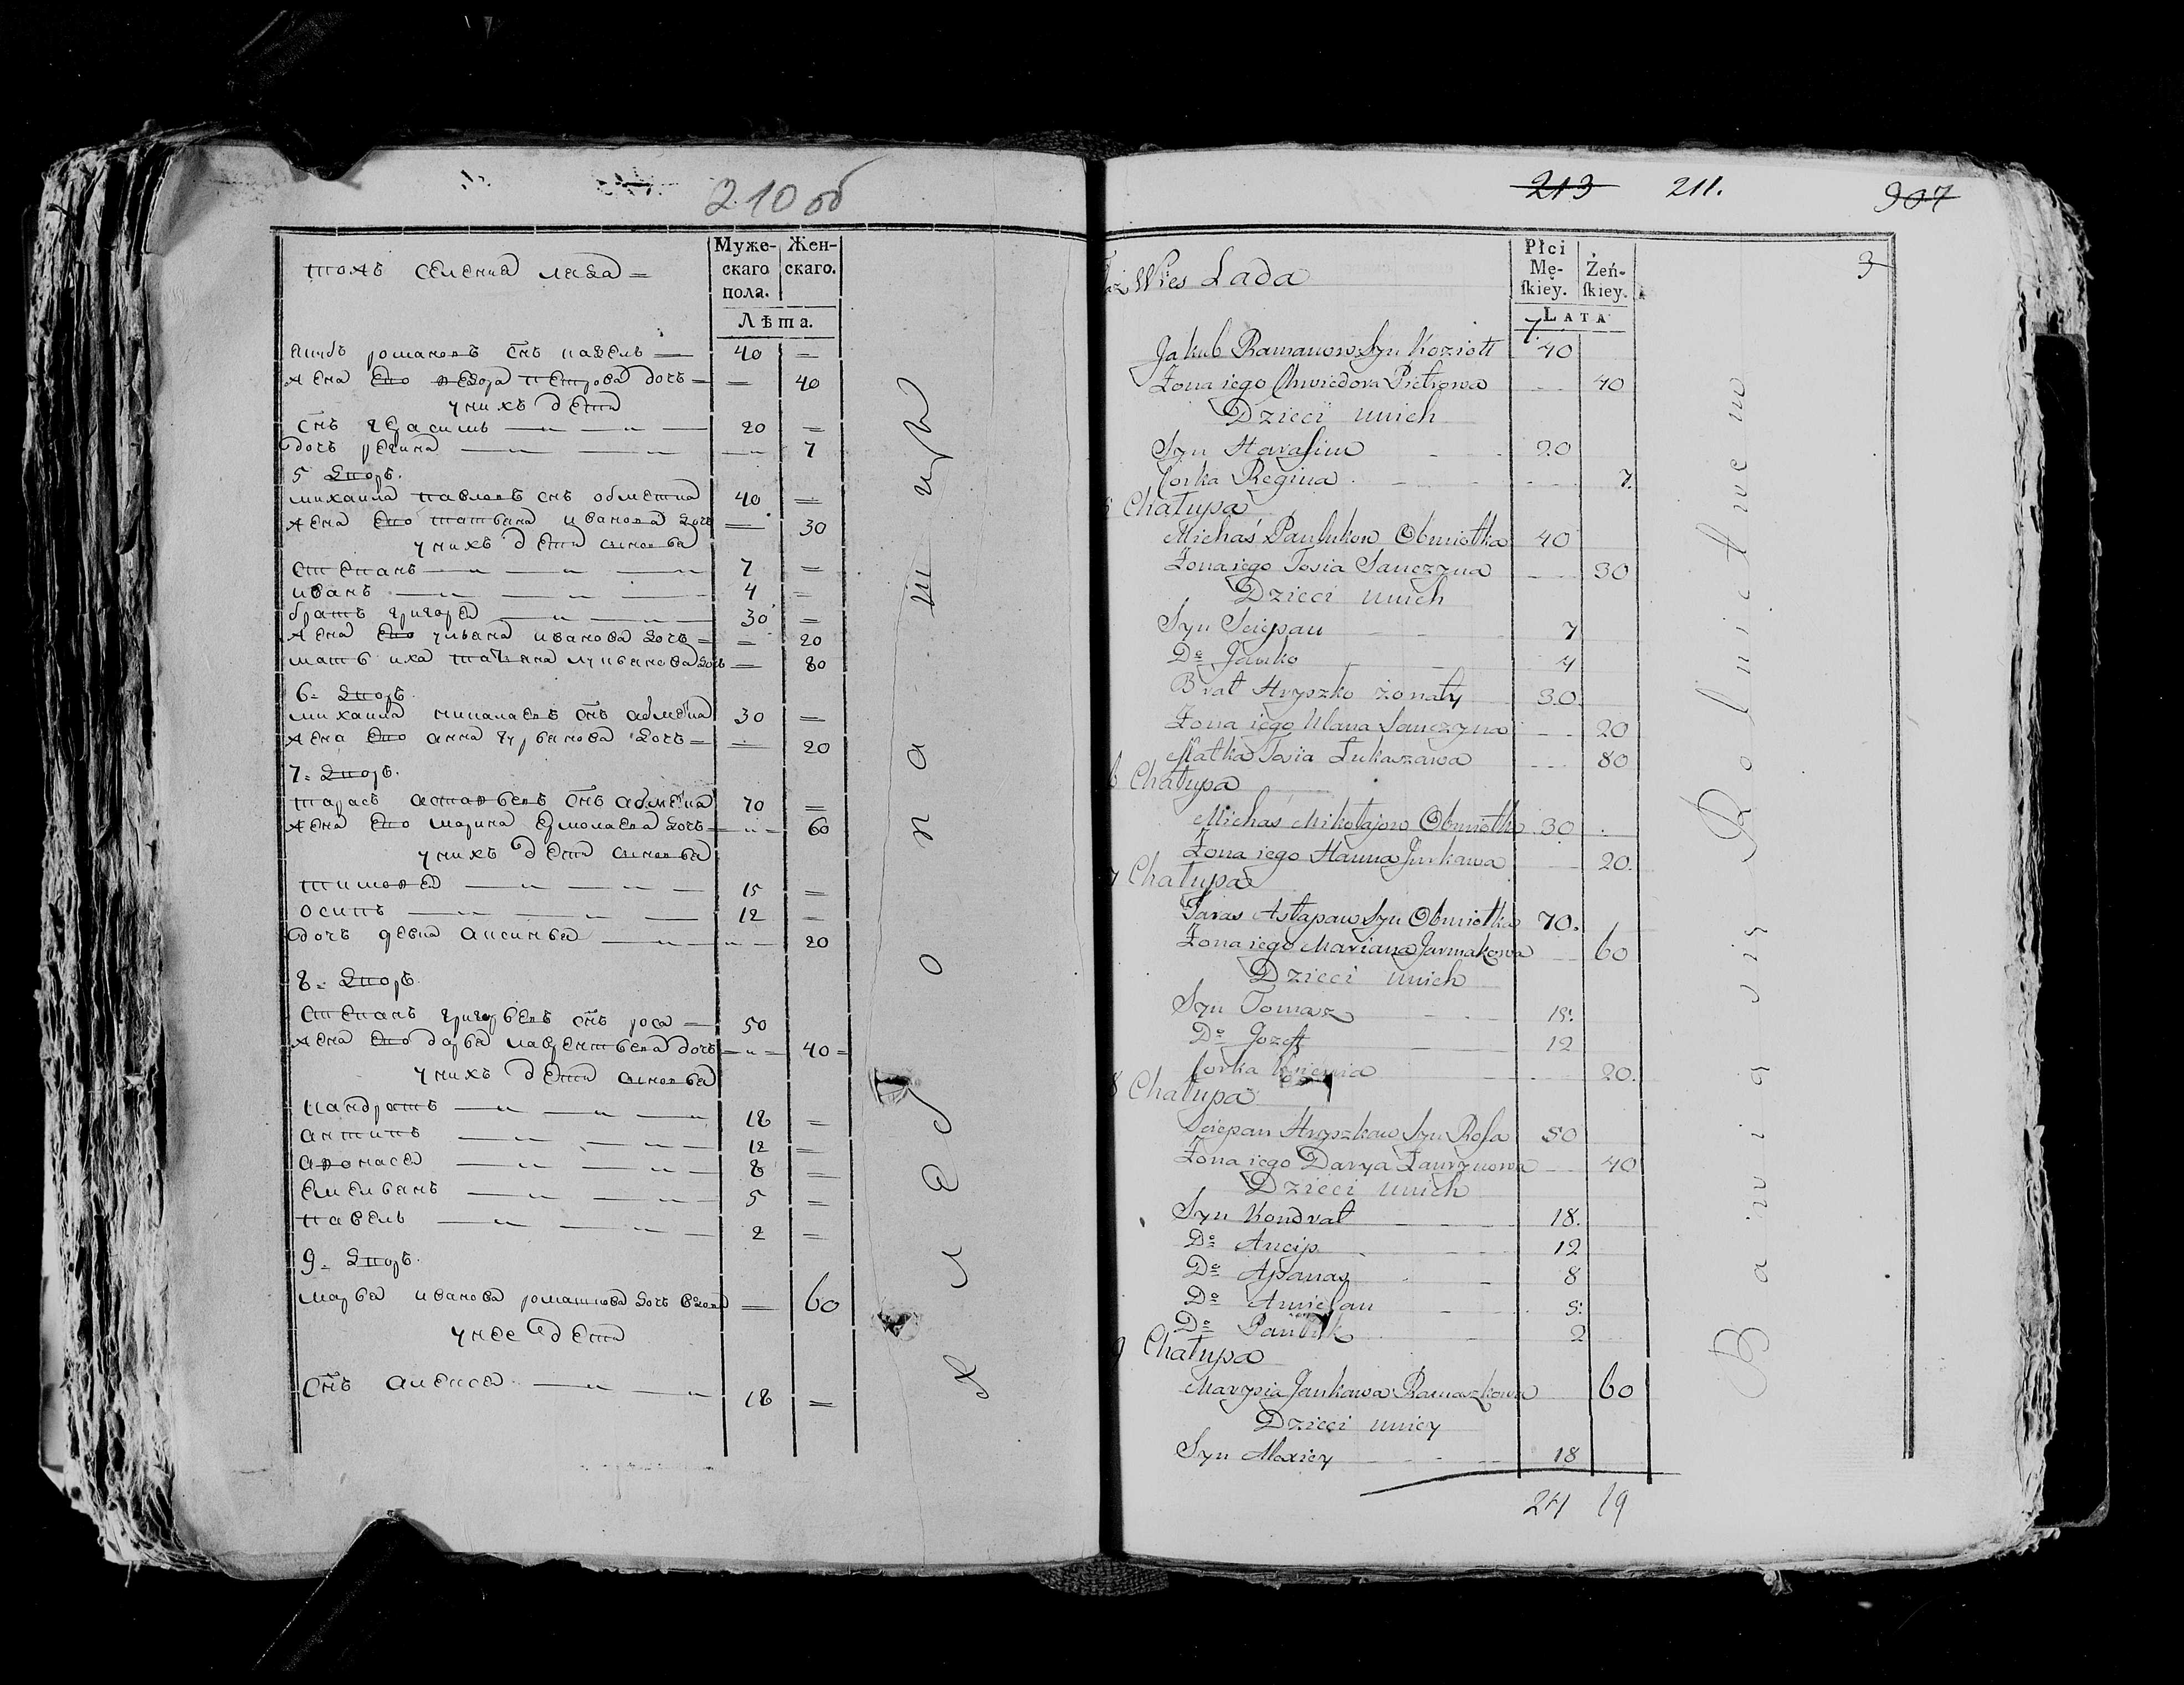 210 об
Муже-
скаго
пола.
Жен-
скаго.
Лѣта.
тожъ селения лада =
якубъ романовъ снъ казелъ — 40 —
жена ево федора петрова дочь — — 40
у нихъ дети
снъ герасимъ — " — " — 20 —
дочь регина — " — " — 7
5 дворъ.
михаила павловъ снъ обметка 40 —
жена ево татьяна иванова дочь — 30
у нихъ дети сыновья
степанъ — " — " — " 7 —
иванъ — " — " — 4 —
братъ григорей — " — " — 30 —
жена ево ульяна иванова дочь — — 20
мать ихъ татьяна лукьянова дочь — 80
6 = дворъ
михаила николаевъ снъ абметка 30 —
жена ево анна юрьянова дочь — — 20
7 = дворъ.
тарасъ астафьевъ снъ абметка 70 —
жена ево марина ермолаева дочь — " — 60
у нихъ дети сыновья
тимофей — " — " — 15 —
осипъ — " — " — 12 —
дочь девка аксинья — " — " — 20
8 = дворъ
степанъ григорьевъ снъ роса — 50
жена ево дарья лаврентьева дочь — " — 40 =
у нихъ дети сыновья
кандратъ — " — " — " 18 —
антипъ — " — " — 12 —
афонасей — " — " — 8 —
емельянъ — " — " — 5 —
павелъ — " — " — 2 —
9 = дворъ.
марья иванова ромашкова дочь вдова — 60
у нее дети
снъ алексей — " — " 18 =
хлебопашцы
213 211. 907
3
Płci
Mę-
ſkiey.
Żeń-
ſkiey.
LATA
Wies Lada
Jakub Ramanow Syn Koziołł 40
Żona iego Chwiedora Pietrowa 40
Dzieci unich
Syn Harasim 20
Corka Regina 7.
Chałupa
Michaś Pawlukow Obmiotka 40
Żona iego Tosia Janczyna 30
Dzieci unich
Syn Sciepan 7
Do Janko 4
Brat Hryszko żonaty 30.
Żona iego Ulana Janczyna 20
Matka Tosia Łukaszawa 80
6 Chałupa
Michaś Mikołajow Obmiotka 30.
Żona iego Hanna Jurkawa 20.
7 Chałupa
Taras Astapaw Syn Obmiotka 70.
Żona iego Mariana Jarmakowa 60
Dzieci unich
Syn Tomasz 15.
Do Jozef 12
Corka 20.
8 Chałupa
Sciepan Hryszkaw Syn Roſa 50
Żona iego Darya Ławrynowa 40
Dzieci unich
Syn Kondrat 18.
Do Ancip 12
Do Apanas 8
Do Amielan 5.
Do Pawluk 2
9 Chałupa
Marysia Jankawa Ramaszkowa 60
Dzieci uniey
Syn Alexiey 18
24 19
Bawią się Rolnictwem